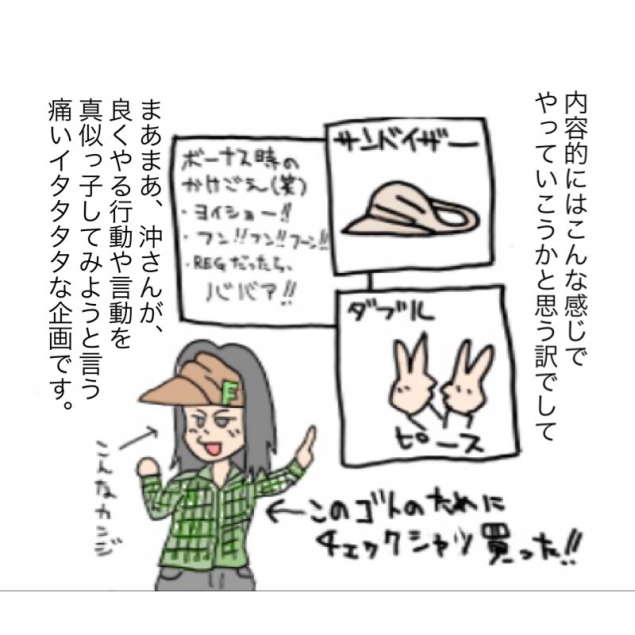 内容的にはこんな感じで
やっていこうかと思う訳でして
サンバイザー
ボーナス時の
かけごえ(笑)
・ヨイショー!!
・フン!!フン!!フーン!!
・REGだったら、
ババア!!
ダブル
ピース
まあまあ、沖さんが、
良くやる行動や言動を
真似っ子してみようと言う
痛いイタタタタな企画です。
F
こんなカンジ
←このゴトのために
チェックシャツ買った!!